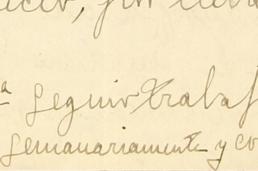 por
a seguir trabaj
semanariamente y co